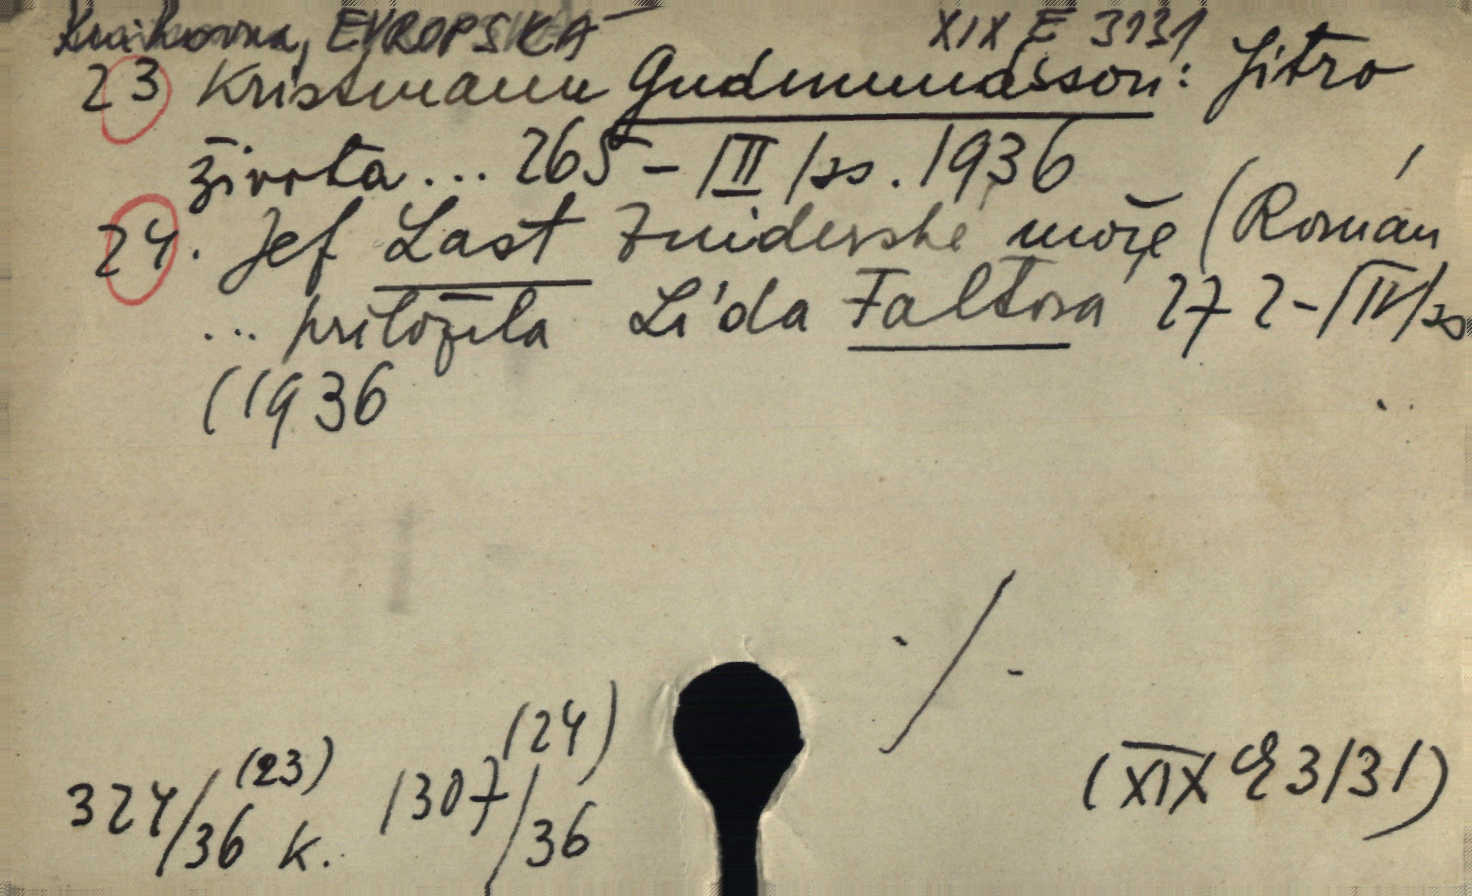 Knihovna, EVROPSKÁ XIX E 3131
23 Kristmann Gudmundsson: Jitro
života... 265 - |III| /ss. 1936
24. Jef Last Zuiderské moře (Román
... přiložila Lída Faltová 272 - |IV|/ss
(1936
(23) (24)
324/36 K. 1307/36
(XIX E 3131)